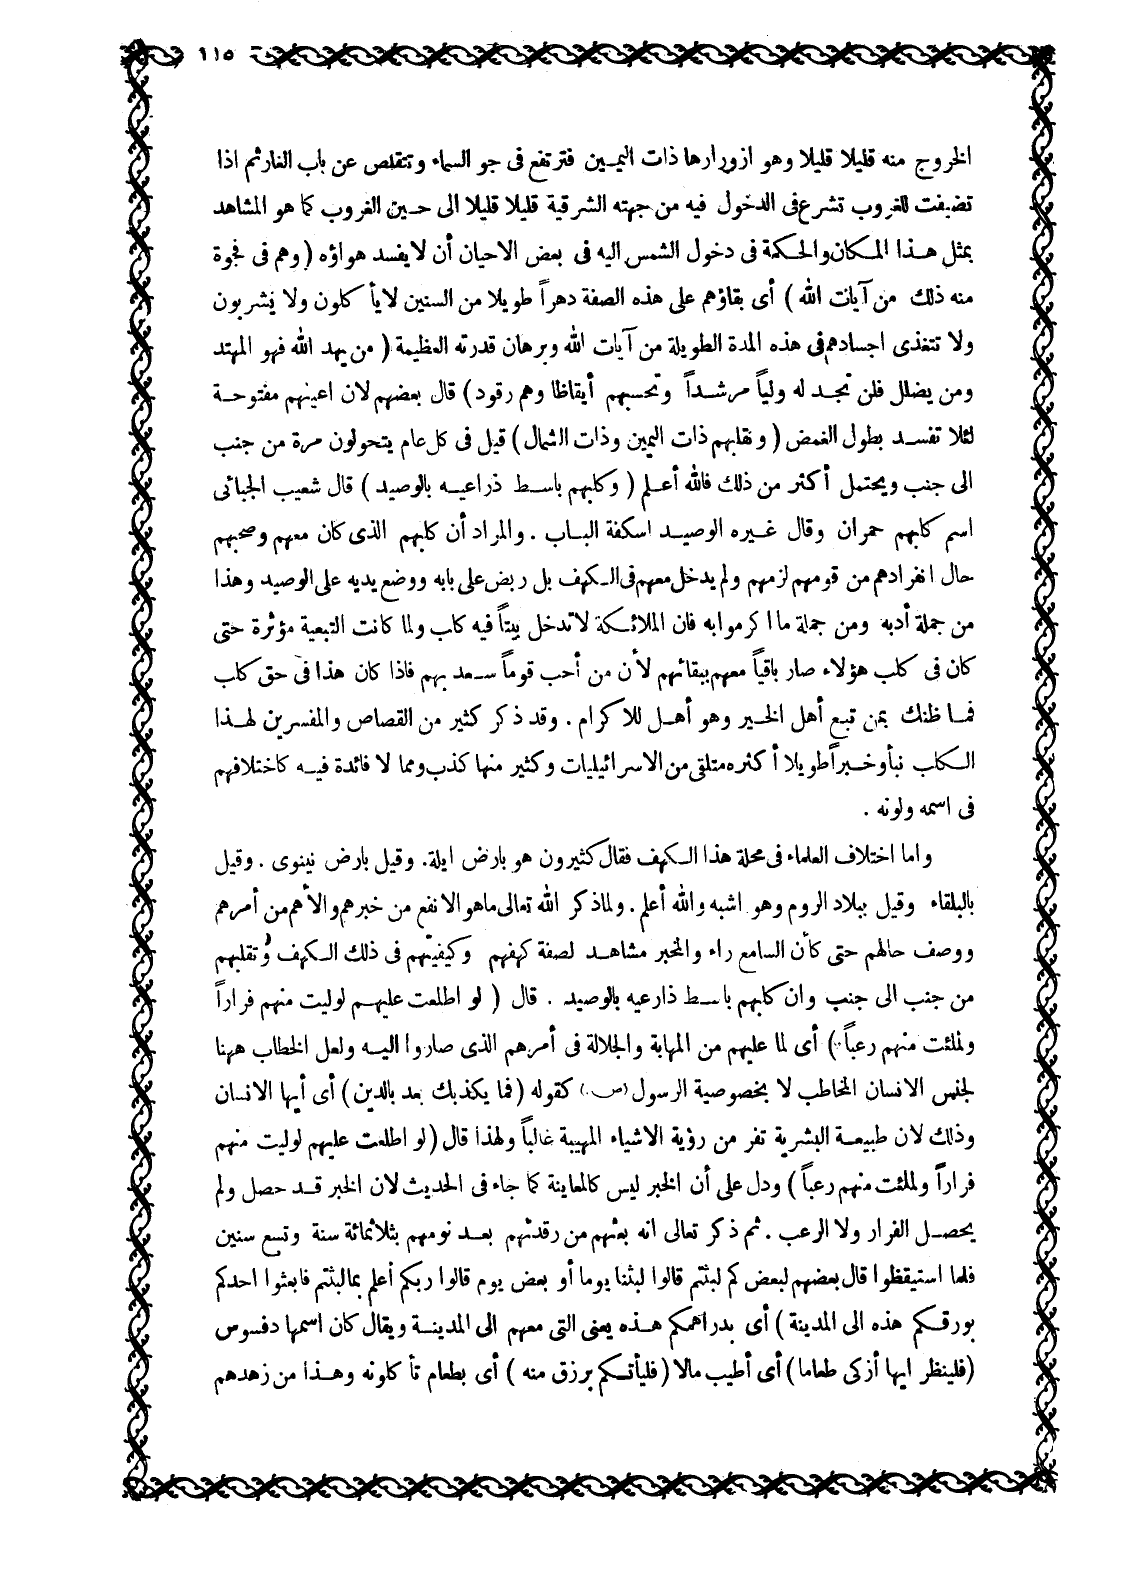 ١١٥
الخروج منه قليلا قليلا وهو ازورارها ذات اليمين فترتفع فى جو السماء وتتقلص عن باب الغار ثم اذا
تضيفت للغروب تشرع فى الدخول فيه من جهته الشرقية قليلا قليلا الى حين الغروب كما هو المشاهد
بمثل هذا المكان والحكمة فى دخول الشمس اليه فى بعض الاحيان أن لا يفسد هواؤه ( وهم فى فجوة
منه ذلك من آيات الله ) أى بقاؤهم على هذه الصفة دهراً طويلا من السنين لا يأكلون ولا يشربون
ولا تتغذى اجسادهم فى هذه المدة الطويلة من آيات الله وبرهان قدرته العظيمة ( من يهد الله فهو المهتد
ومن يضلل فلن تجد له ولياً مرشداً وتحسبهم أيقاظا وهم رقود ) قال بعضهم لان اعينهم مفتوحة
لئلا تفسد بطول الغمض ( ونقلبهم ذات اليمين وذات الشمال ) قيل فى كل عام يتحولون مرة من جنب
الى جنب ويحتمل أكثر من ذلك فالله أعلم ( وكلبهم باسط ذراعيه بالوصيد ) قال شعيب الجبائى
اسم كلبهم حمران وقال غيره الوصيد اسكفة الباب . والمراد أن كلبهم الذى كان معهم وصحبهم
حال انفرادهم من قومهم لزمهم ولم يدخل معهم فى الكهف بل ربض على بابه ووضع يديه على الوصيد وهذا
من جملة أدبه ومن جملة ما اكرموا به فان الملائكة لا تدخل بيتاً فيه كلب ولما كانت التبعية مؤثرة حتى
كان فى كلب هؤلاء صار باقياً معهم ببقائهم لأن من أحب قوماً سعد بهم فاذا كان هذا فى حق كلب
فما ظنك بمن تبع أهل الخير وهو أهل للاكرام . وقد ذكر كثير من القصاص والمفسرين لهذا
الكلب نبأ وخبراً طويلا أكثره متلقى من الاسرائيليات وكثير منها كذب ومما لا فائدة فيه كاختلافهم
فى اسمه ولونه .
واما اختلاف العلماء فى محلة هذا الكهف فقال كثيرون هو بارض ايلة. وقيل بارض نينوى . وقيل
بالبلقاء وقيل ببلاد الروم وهو اشبه والله أعلم . ولما ذكر الله تعالى ما هو الانفع من خبرهم والأهم من أمرهم
ووصف حالهم حتى كأن السامع راء والمخبر مشاهد لصفة كهفهم وكيفيتهم فى ذلك الكهف وتقلبهم
من جنب الى جنب وان كلبهم باسط ذارعيه بالوصيد . قال ( لو اطلعت عليهم لوليت منهم فراراً
ولملئت منهم رعباً ) أى لما عليهم من المهابة والجلالة فى أمرهم الذى صاروا اليه ولعل الخطاب ههنا
لجنس الانسان المخاطب لا بخصوصية الرسول (ص) كقوله ( فما يكذبك بعد بالدين ) أى أيها الانسان
وذلك لان طبيعة البشرية تفر من رؤية الاشياء المهيبة غالباً ولهذا قال ( لو اطلعت عليهم لوليت منهم
فراراً ولملئت منهم رعباً ) ودل على أن الخبر ليس كالمعاينة كما جاء فى الحديث لان الخبر قد حصل ولم
يحصل الفرار ولا الرعب . ثم ذكر تعالى انه بعثهم من رقدتهم بعد نومهم بثلاثمائة سنة وتسع سنين
فلما استيقظوا قال بعضهم لبعض كم لبثتم قالوا لبثنا يوما أو بعض يوم قالوا ربكم أعلم بما لبثتم فابعثوا احدكم
بورقكم هذه الى المدينة ) أى بدراهمكم هذه يعنى التى معهم الى المدينة ويقال كان اسمها دفسوس
( فلينظر ايها أزكى طعاما ) أى أطيب مالا ( فليأتكم برزق منه ) أى بطعام تأكلونه وهذا من زهدهم